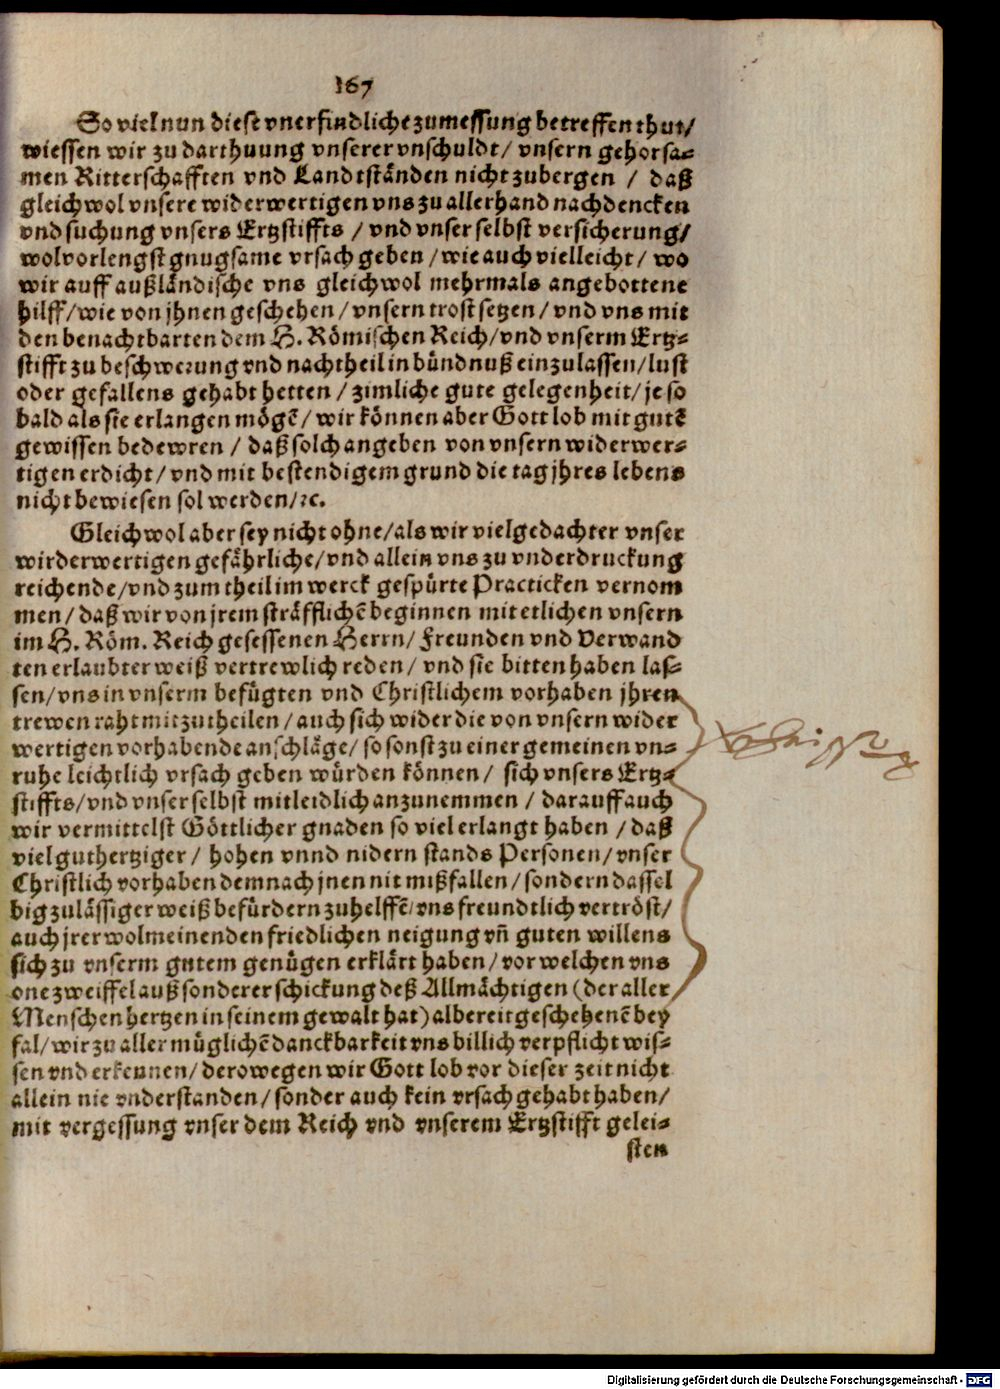 167
So viel nun diese vnerfindliche zumessung betreffen thut/
wiessen wir zu darthuung vnserer vnschuldt/ vnsern gehorsa-
men Ritterschafften vnd Landtständen nicht zubergen / daß
gleichwol vnsere widerwertigen vns zu allerhand nachdencken
vnd suchung vnsers Ertzstiffts / vnd vnser selbst versicherung/
wol vorlengst gnugsame vrsach geben / wie auch vielleicht / wo
wir auff außländische vns gleichwol mehrmals angebottene
hilff/ wie von jhnen geschehen / vnsern trost setzen / vnd vns mit
den benachtbarten dem H. Römischen Reich/ vnd vnserm Ertz-
stifft zu beschwerung vnd nachtheil in bündnuß einzulassen/ lust
oder gefallens gehabt hetten / zimliche gute gelegenheit/ je so
bald als sie erlangen mögē / wir können aber Gott lob mit gutē
gewissen bedewren / daß solch angeben von vnsern widerwer-
tigen erdicht/ vnd mit bestendigem grund die tag jhres lebens
nicht bewiesen sol werden/ ꝛc.
Gleichwol aber sey nicht ohne/ als wir vielgedachter vnser
wirderwertigen gefährliche/ vnd allein vns zu vnderdruckung
reichende/ vnd zum theil im werck gespürte Practicken vernom
men / daß wir von jrem sträfflichē beginnen mit etlichen vnsern
im H. Röm. Reich gesessenen Herrn/ Freunden vnd Verwand
ten erlaubter weiß vertrewlich reden / vnd sie bitten haben las-
sen/ vns in vnserm befügten vnd Christlichem vorhaben jhren
trewen raht mitzutheilen / auch sich wider die von vnsern wider
wertigen vorhabende anschläge/ so sonst zu einer gemeinen vn-
ruhe leichtlich vrsach geben würden können / sich vnsers Ertz-
stiffts/ vnd vnser selbst mitleidlich anzunemmen / darauff auch
wir vermittelst Göttlicher gnaden so viel erlangt haben / daß
viel guthertziger / hohen vnnd nidern stands Personen/ vnser
Christlich vorhaben demnach jnen nit mißfallen / sondern dassel
big zulässiger weiß befürdern zuhelffē/ vns freundtlich vertröst/
auch jrer wolmeinenden friedlichen neigung vn̄ guten willens
sich zu vnserm gutem genügen erklärt haben / vor welchen vns
one zweiffel auß sonderer schickung deß Allmächtigen (der aller
Menschen hertzen in seinem gewalt hat) albereit geschehenē bey
fal/ wir zu aller müglichē danckbarkeit vns billich verpflicht wis-
sen vnd erkennen / derowegen wir Gott lob vor dieser zeit nicht
allein nie vnderstanden / sonder auch kein vrsach gehabt haben /
mit vergessung vnser dem Reich vnd vnserem Ertzstifft gelei-
sten
Digitalisierung gefördert durch die Deutsche Forschungsgemeinschaft - DFG